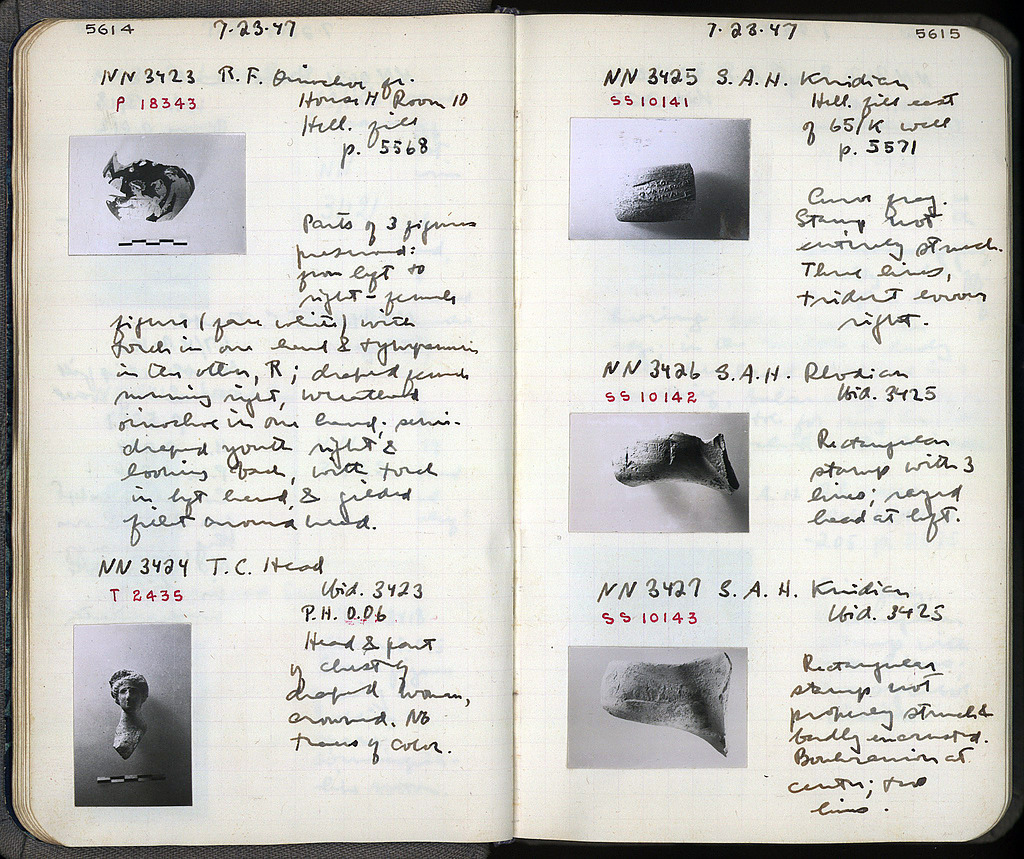 5614
7·23·47
NN 3423 R.F. Oinochoe fr.
P 18343
House H Room 10
Hell. fill
p. 5568
Parts of 3 figures
preserved:
from left to
right – female
figure (face white) with
torch in one hand & tympanum
in the other, R; draped female
running right,
oinochoe in one hand; semi-
draped youth right &
looking back, with torch
in left hand, & gilded
fillet around head.
NN 3424 T.C. Head
T 2435
Ibid. 3423
P.H. 0.06
Head & part
of chest of
draped woman,
crowned. No
traces of color.
7·23·47
5615
NN 3425 S.A.H. Knidian
SS 10141
Hell. fill east
of 65/K well
p. 5571
Curved frag.
Stamp not
entirely struck.
Three lines,
trident lower
right.
NN 3426 S.A.H. Rhodian
SS 10142
Ibid. 3425
Rectangular
stamp with 3
lines; rayed
head at left.
NN 3427 S.A.H Knidian
SS 10143
Ibid. 3425
Rectangular
stamp not
properly struck &
badly encrusted.
Boukranion at
center; two
lines.